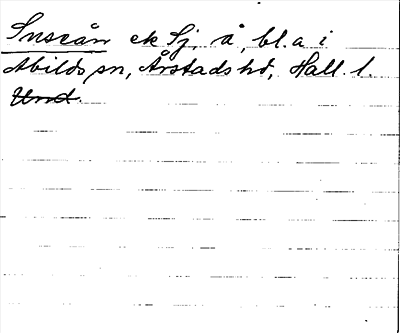 Susеån ek Sj, å, bl.a i
Abilds sn, Årstads hd, Hall. l.
Und.